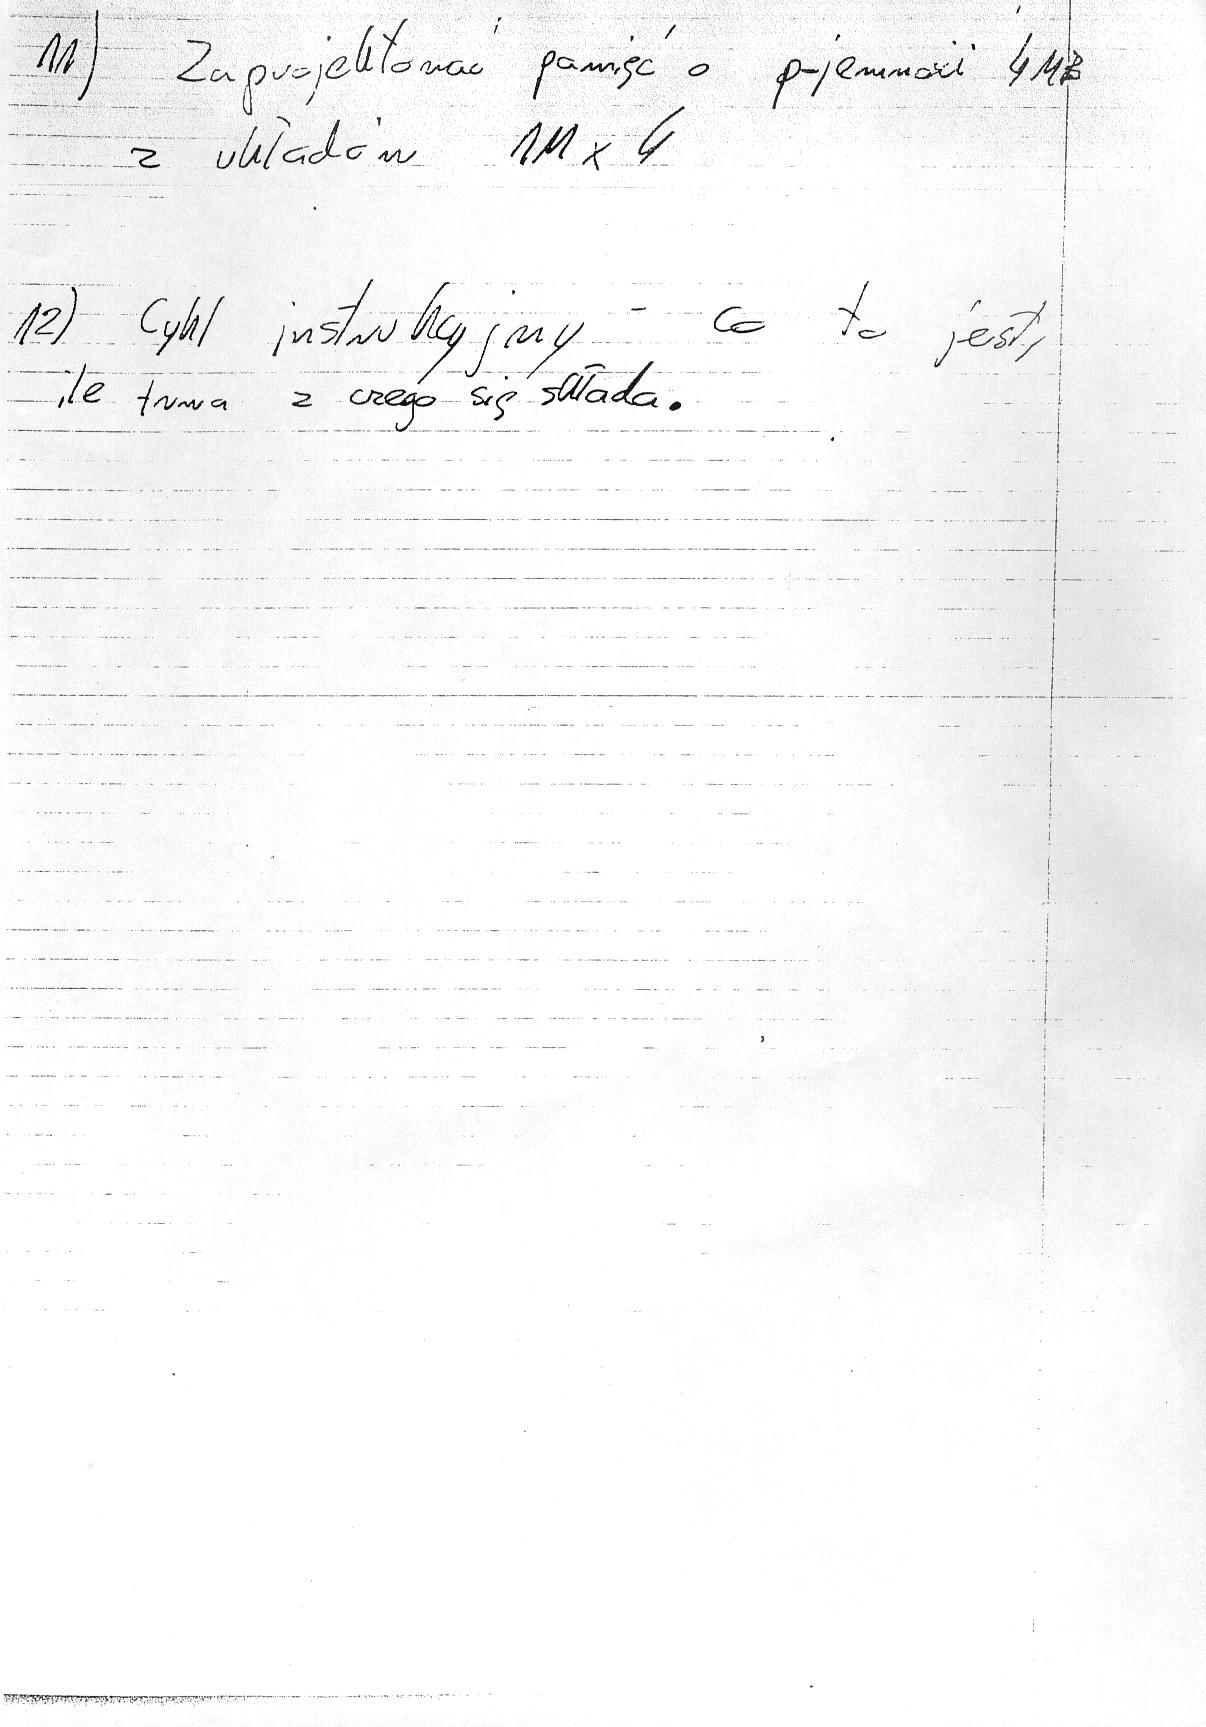 11) Zaprojektować pamięć o pojemności 4MB
z układów 1M x 4
12) Cykl instrukcyjny - co to jest,
ile trwa z czego się składa.